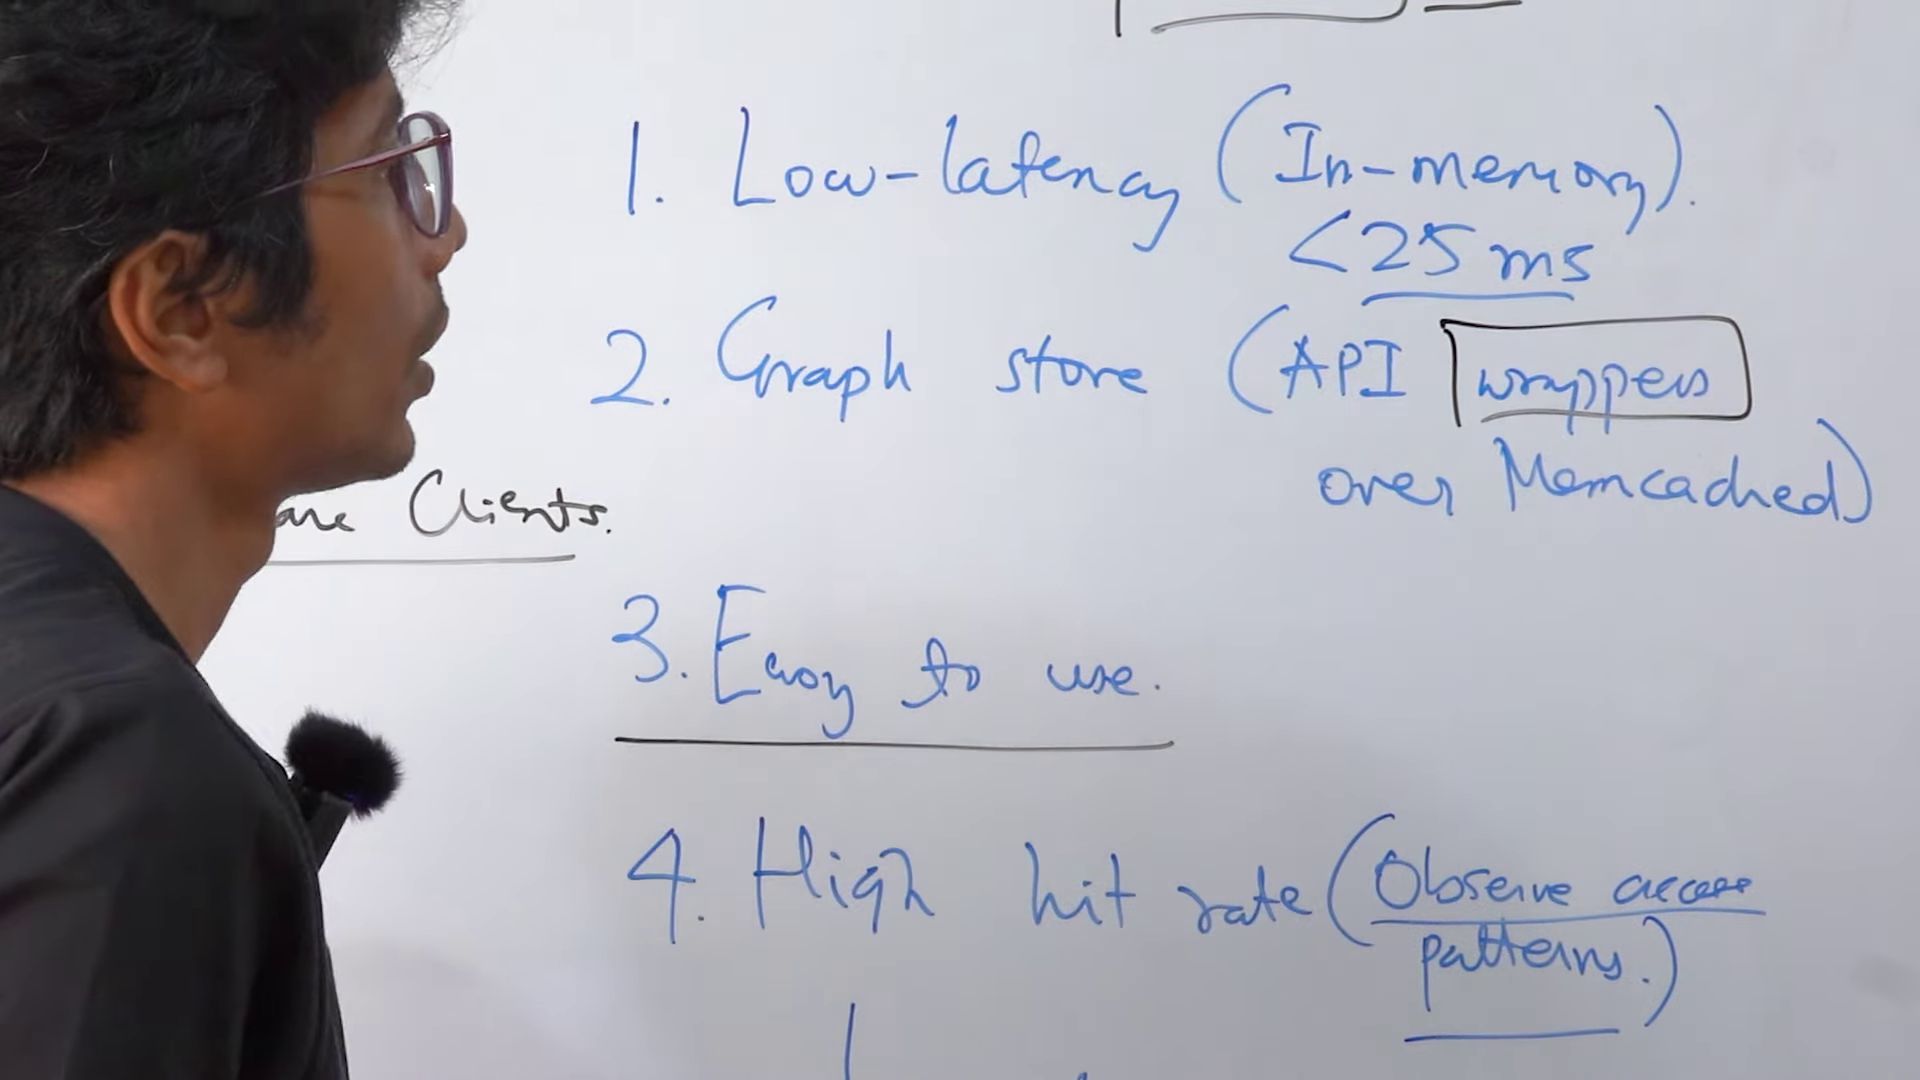 1. Low-latency (In-memory).
<25 ms
2. Graph store (API wrappers
over Memcached)
Clients.
3. Easy to use.
4. High hit rate (Observe access
patterns.)